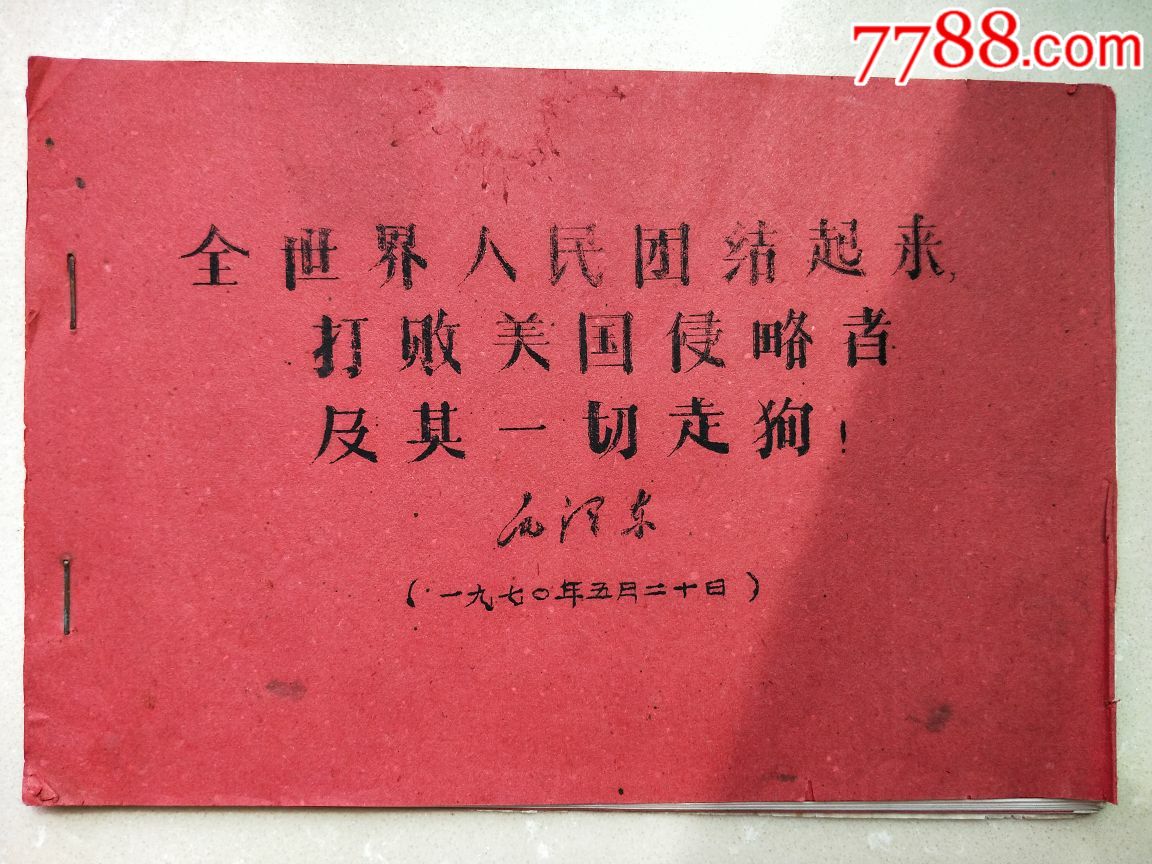 7788.com
全世界人民团结起来,
打败美国侵略者
及其一切走狗!
毛泽东
(一九七〇年五月二十日)